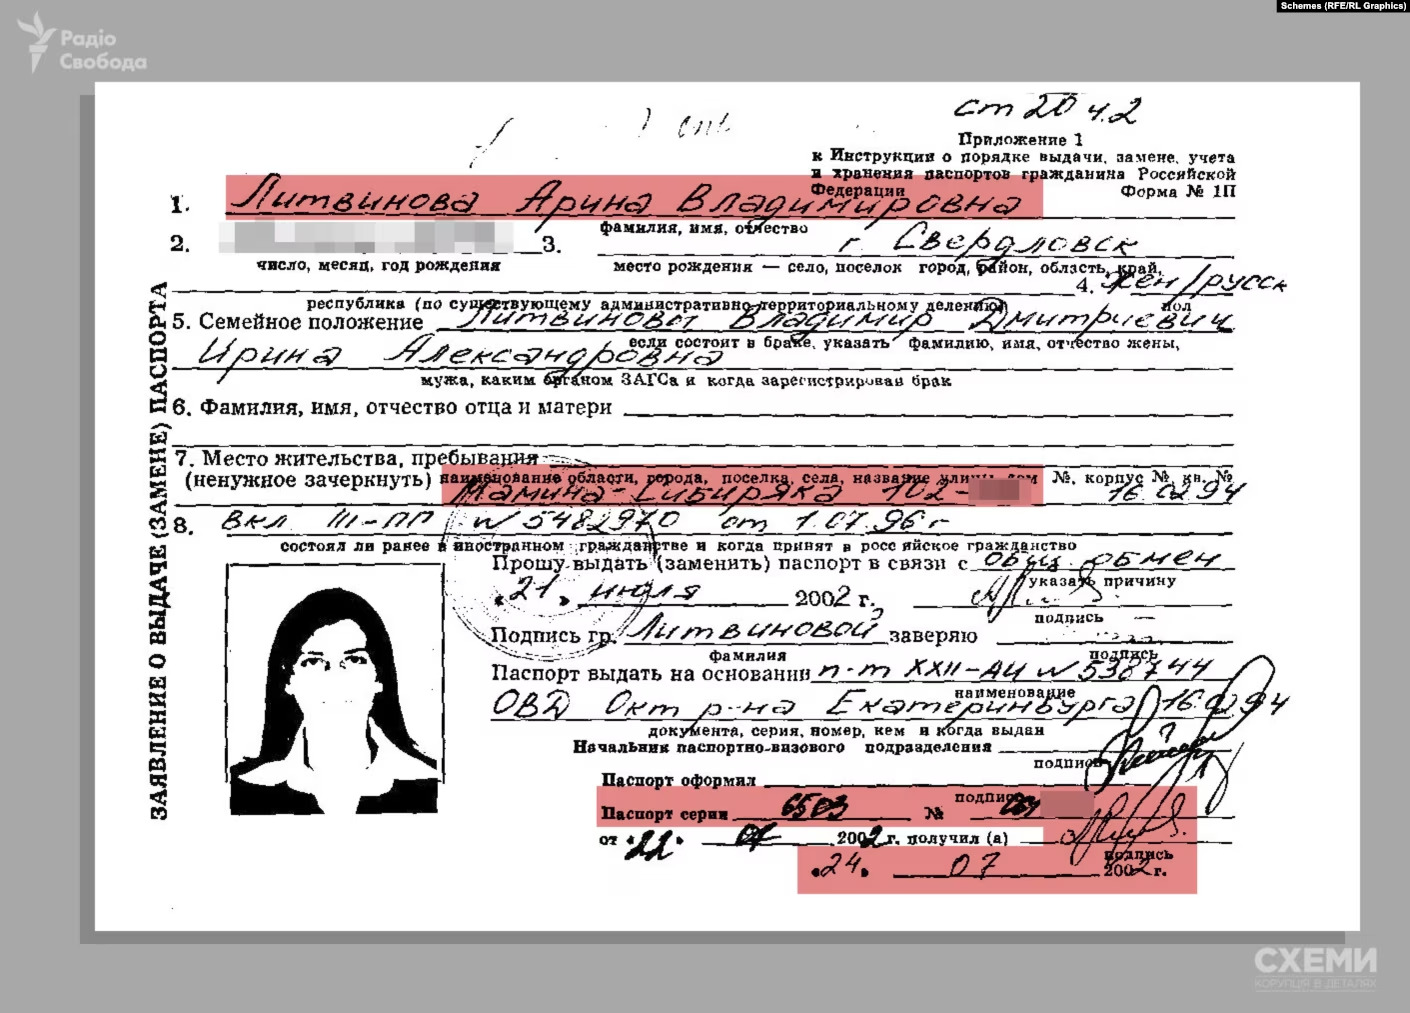 Schemes (RFE/RL Graphics)
Радіо
Свобода
ст 20 ч.2
Приложение 1
к Инструкции о порядке выдачи, замене, учета
и хранения паспортов гражданина Российской
Федерации Форма № 1П
1. Литвинова Арина Владимировна
фамилия, имя, отчество
2. 3. г. Свердловск
число, месяц, год рождения место рождения — село, поселок город, район, область, край,
4. жен/русск
республика (по существующему административно-территориальному делению) пол
5. Семейное положение Литвиновы Владимир Дмитриевич
если состоит в браке, указать фамилию, имя, отчество жены,
Ирина Александровна
мужа, каким органом ЗАГСа и когда зарегистрирован брак
6. Фамилия, имя, отчество отца и матери
7. Место жительства, пребывания
(ненужное зачеркнуть) наименование области, города, поселка, села, название улицы, дом №, корпус № кв. №
Мамина-Сибиряка 102- 16.02.94
8. Вкл III-ПП № 5482970 от 1.07.96г
состоял ли ранее в иностранном гражданстве и когда принят в российское гражданство
Прошу выдать (заменить) паспорт в связи с общ. обмен
указать причину
«21» июля 2002 г.
подпись
Подпись гр. Литвиновой заверяю
фамилия подпись
Паспорт выдать на основании п-т XXII-АИ № 538744
наименование
ОВД Окт р-на Екатеринбурга 16.02.94
документа, серия, номер, кем и когда выдан
Начальник паспортно-визового подразделения
подпись
Паспорт оформил
подпись
Паспорт серии 6503 №
от «22» 07 2002 г. получил (а)
подпись
«24» 07 2002 г.
ЗАЯВЛЕНИЕ О ВЫДАЧЕ (ЗАМЕНЕ) ПАСПОРТА
СХЕМИ
КОРУПЦІЯ В ДЕТАЛЯХ